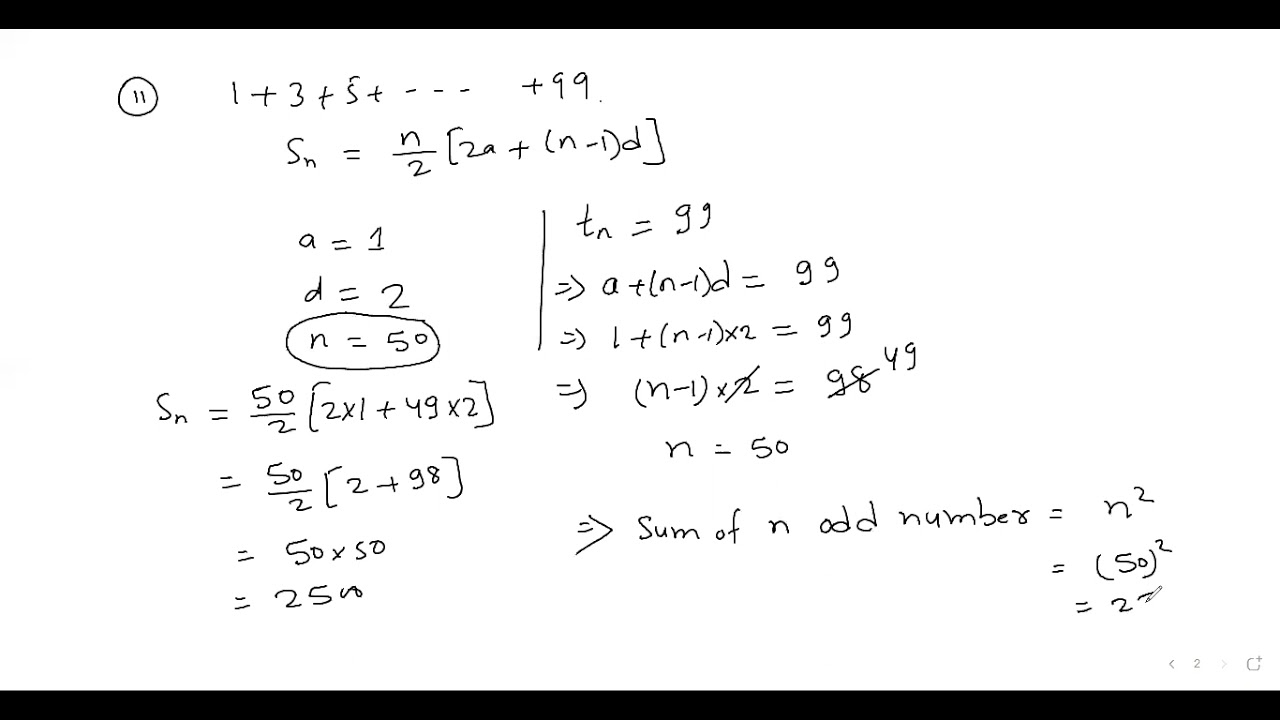 11 1 + 3 + 5 + - - - + 99.
Sn = n/2 [2a + (n-1)d]
a = 1
d = 2
n = 50
tn = 99
=> a + (n-1)d = 99
=> 1 + (n-1)×2 = 99
=> (n-1)×2 = 98 49
n = 50
Sn = 50/2 [2×1 + 49×2]
= 50/2 [2 + 98]
= 50 × 50
= 2500
=> Sum of n odd number = n²
= (50)²
= 2
2